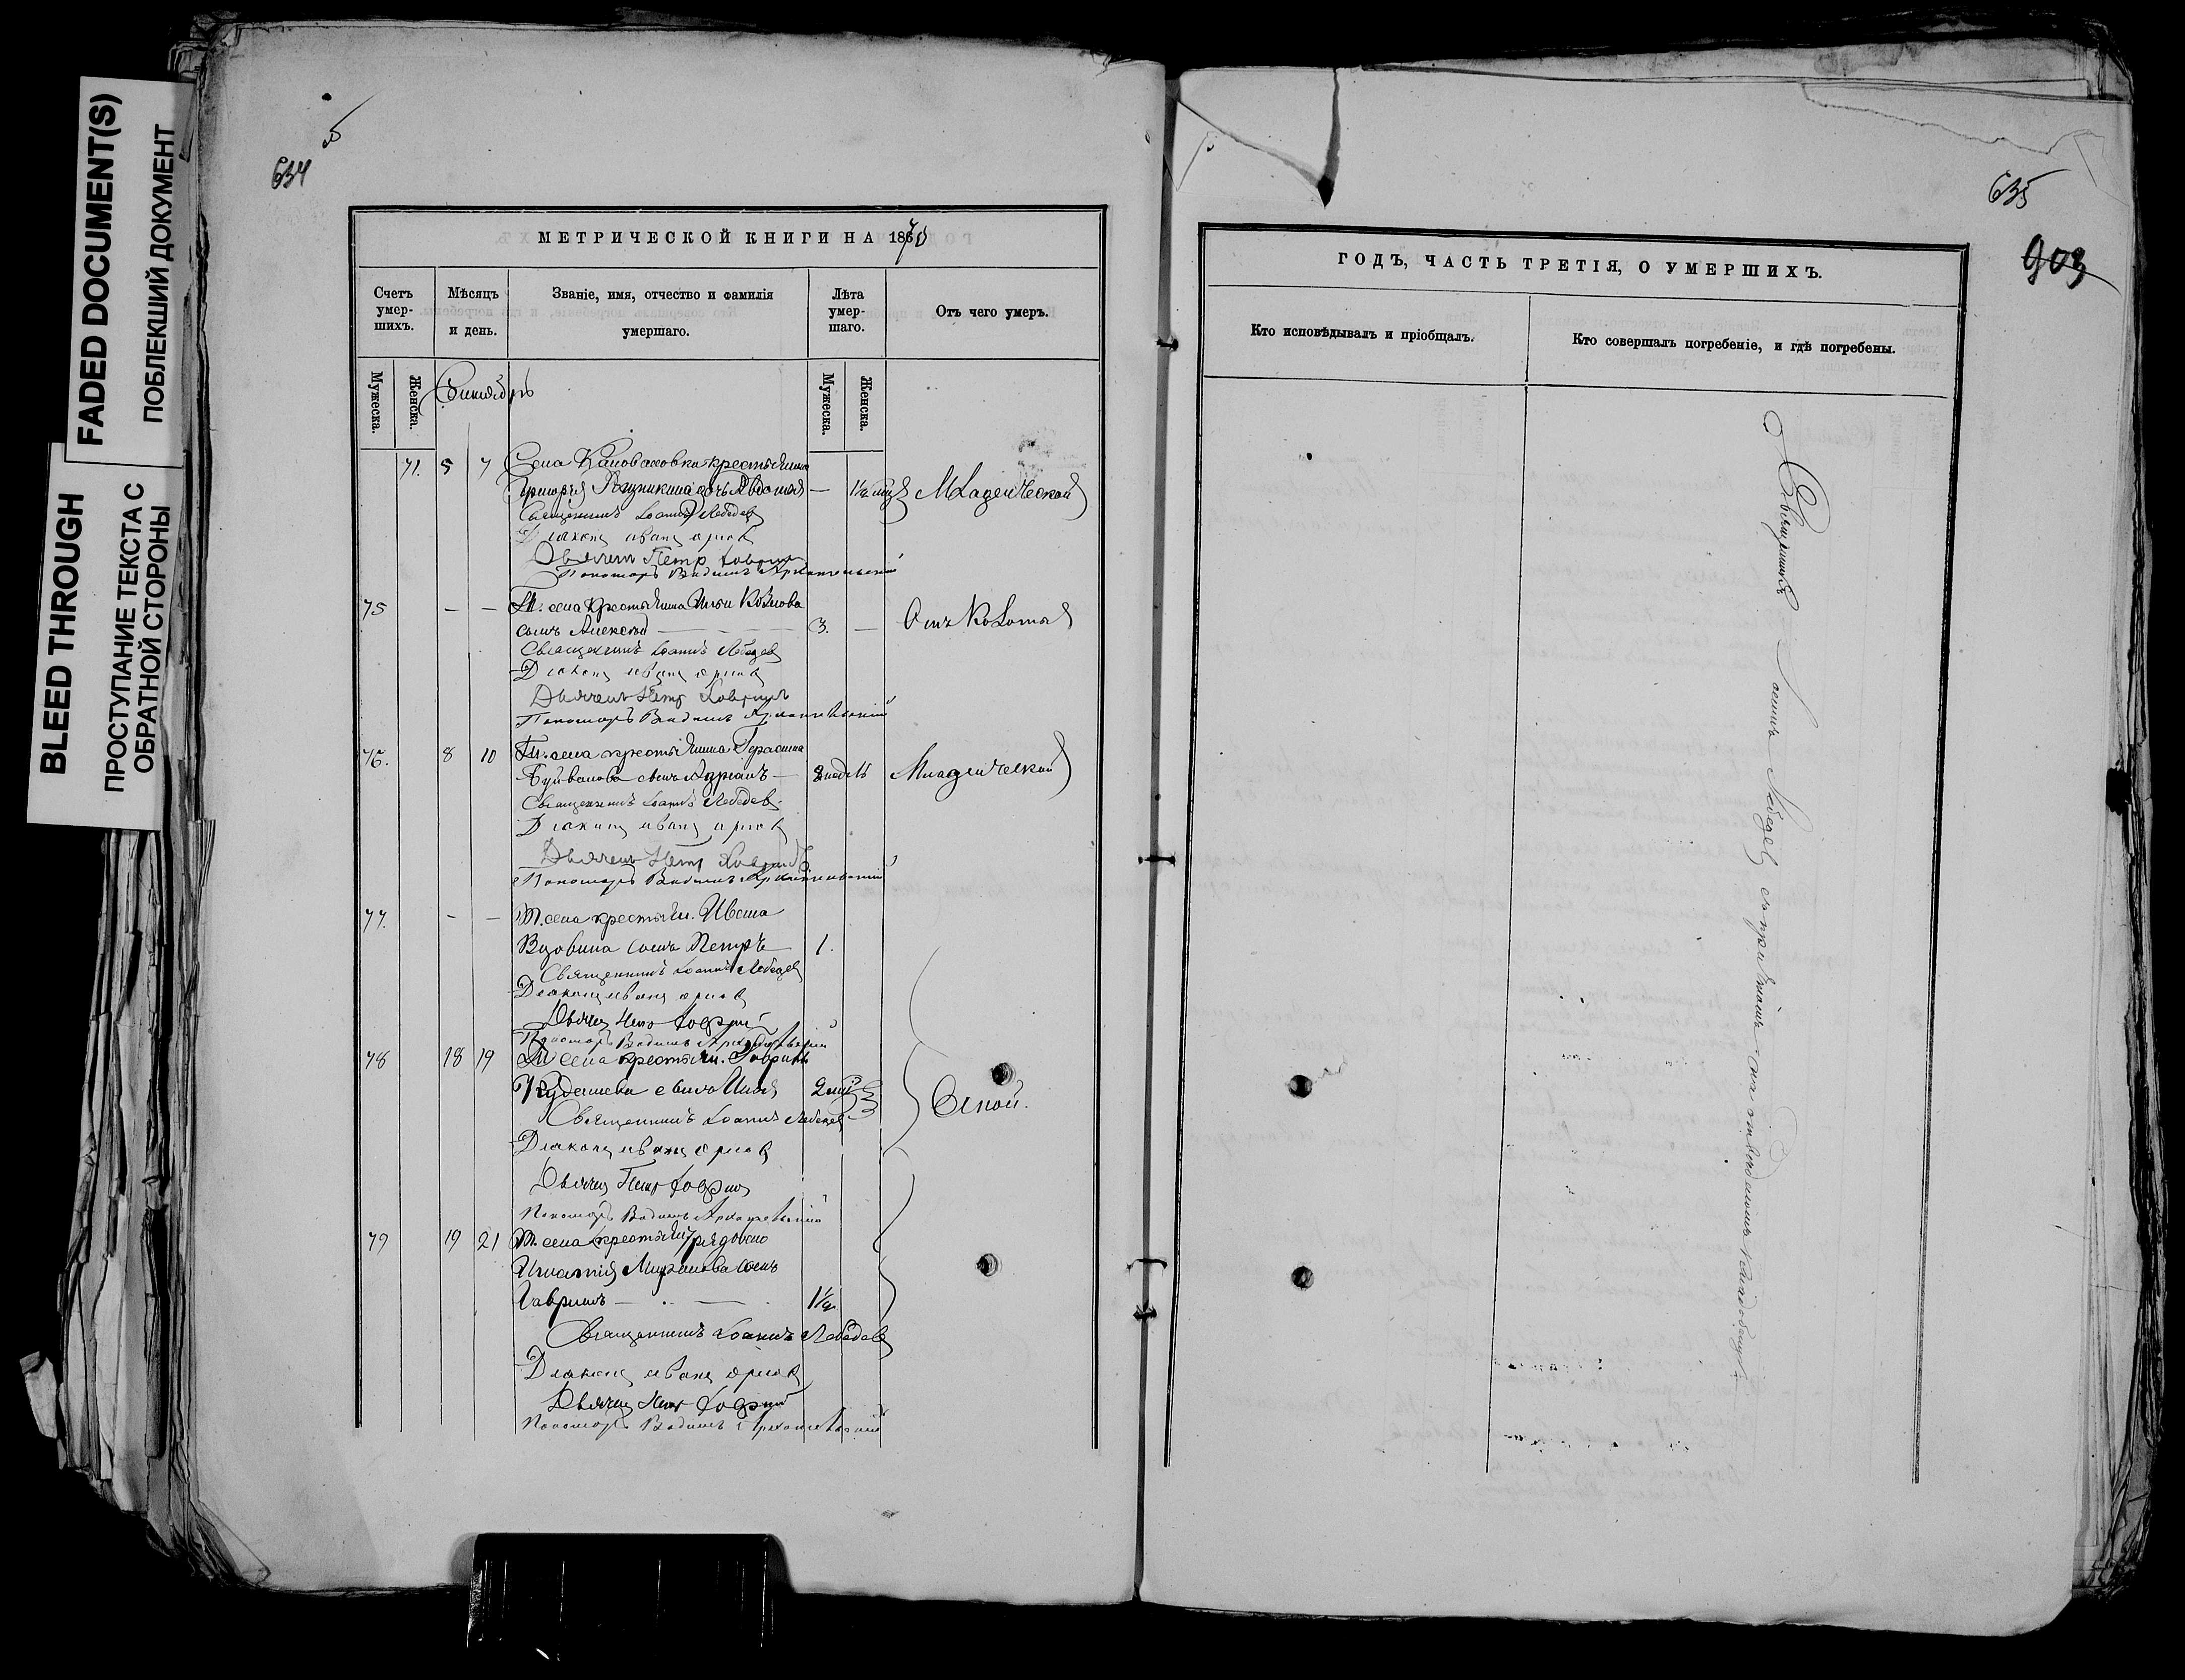 FADED DOCUMENT(S)
ПОБЛЕКШИЙ ДОКУМЕНТ
BLEED THROUGH
ПРОСТУПАНИЕ ТЕКСТА С
ОБРАТНОЙ СТОРОНЫ
5
634
МЕТРИЧЕСКОЙ КНИГИ НА 1870
Счетъ умер-шихъ.
Мѣсяцъ и день.
Званіе, имя, отчество и фамилія умершаго.
Лѣта умер-шаго.
Отъ чего умеръ.
Мужеска.
Женска.
Сентябрь
Мужеска.
Женска.
71. 5 7 Села крестьянина
Григорія дочь Евдокія — 1½ Младенческой
Священникъ Іоаннъ Лебедевъ
Діаконъ Иванъ Орловъ
Дьячекъ Петръ
Пономарь Вадимъ Архангельскій
75 — — Т. села крестьянина Ильи
сынъ Алексей — 3. — Отъ
Священникъ Іоаннъ Лебедевъ
Діаконъ Иванъ Орловъ
Дьячекъ Петръ
Пономарь Вадимъ Архангельскій
76. 8 10 Т. села крестьянина Герасима
сынъ Адрианъ — недель Младенческой
Священникъ Іоаннъ Лебедевъ
Діаконъ Иванъ Орловъ
Дьячекъ Петръ
Пономарь Вадимъ Архангельскій
77. — — Т. села крестьян. Ивана
Вдовина сынъ Петръ — 1.
Священникъ Іоаннъ Лебедевъ
Діаконъ Иванъ Орловъ
Дьячекъ Петръ
Пономарь Вадимъ Архангельскій
78 18 19 Т. села крестьян.
Кудашева сынъ Илья 2 Оспой.
Священникъ Іоаннъ Лебедевъ
Діаконъ Иванъ Орловъ
Дьячекъ Петръ
Пономарь Вадимъ Архангельскій
79 19 21 Т. села
Игнатія сынъ
Гавриилъ — 1½
Священникъ Іоаннъ Лебедевъ
Діаконъ Иванъ Орловъ
Дьячекъ Петръ
Пономарь Вадимъ Архангельскій
635
903
ГОДЪ, ЧАСТЬ ТРЕТІЯ, О УМЕРШИХЪ.
Кто исповѣдывалъ и пріобщалъ.
Кто совершалъ погребеніе, и гдѣ погребены.
Священникъ Іоаннъ Лебедевъ съ причтомъ на отведенномъ кладбищѣ